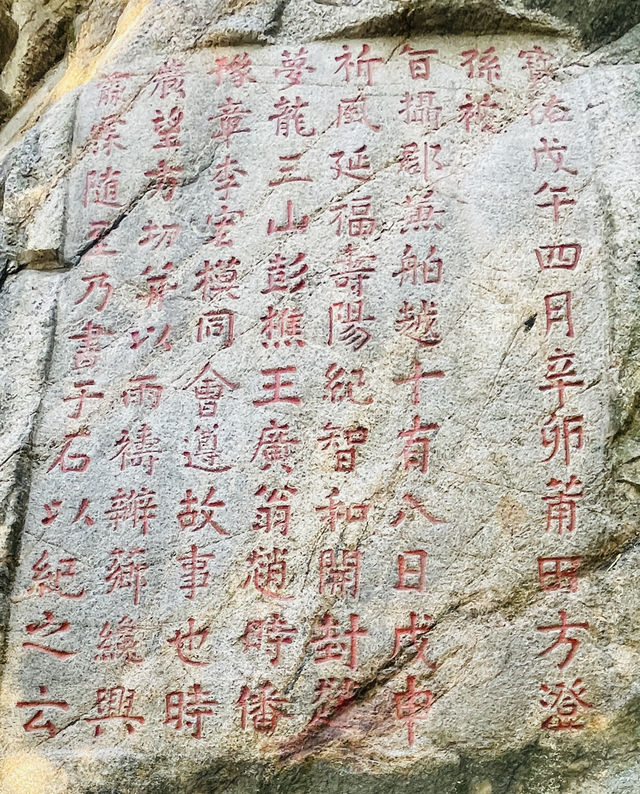 寶祐戊午四月辛卯莆田方澄
孫被
旨攝郡兼舶越十有八日戊申
祈風延福壽陽紀智和開封趙
夢龍三山彭樵王廣翁趙時僠
豫章李宏模同會遵故事也時
農望方切并以雨禱瓣薌纔興
霖随至乃書于石以紀之云